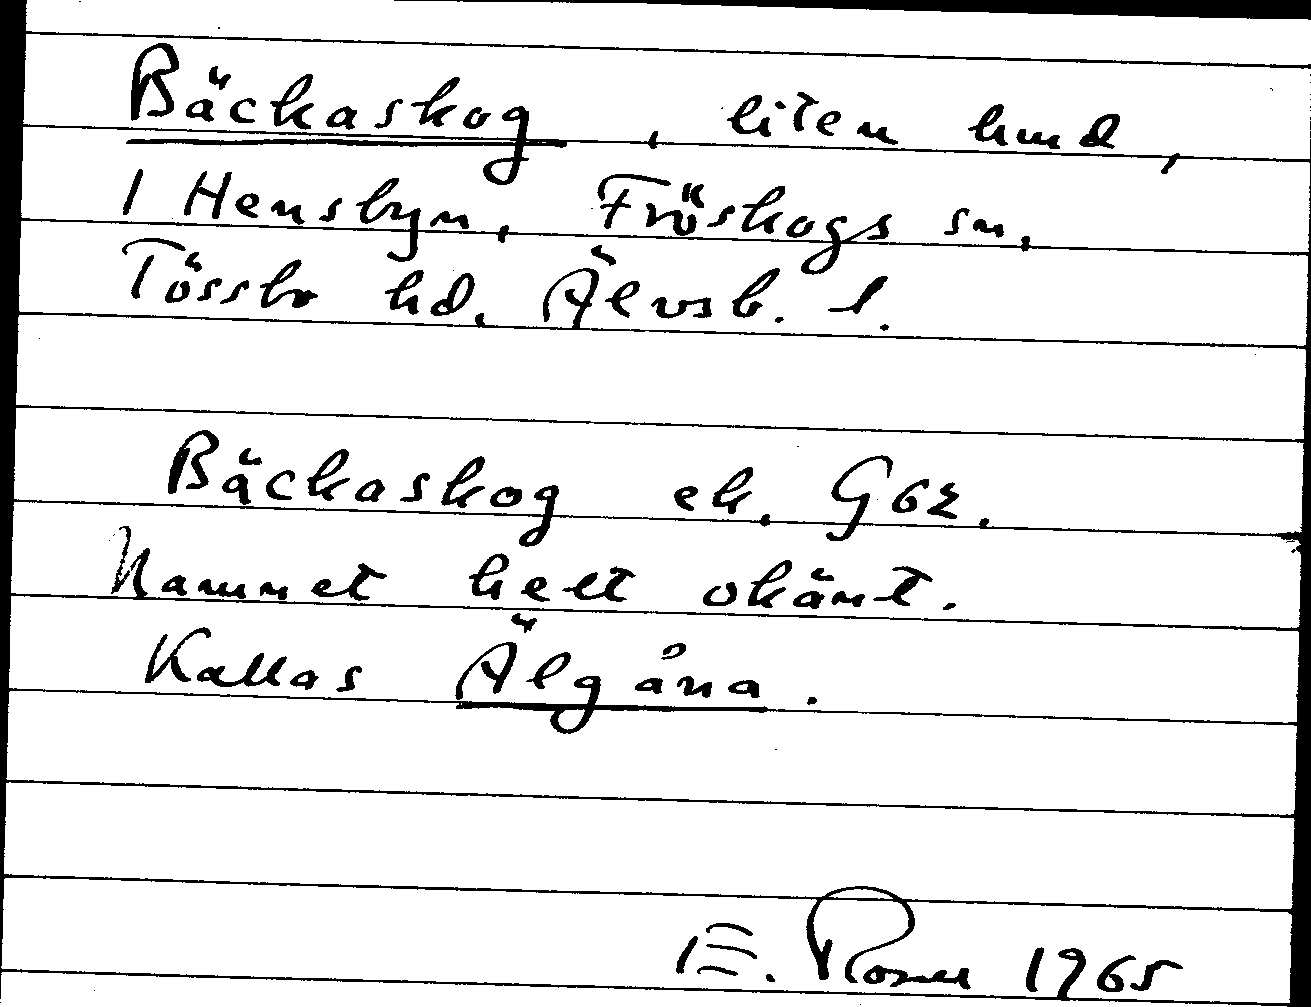 Bäckaskog, liten hmd,
1 Hensbyn, Fröskogs sn,
Tössbo hd. Älvsb. l.
Bäckaskog ek. G62.
Namnet helt okänt.
Kallas Älgåna.
E. 1965